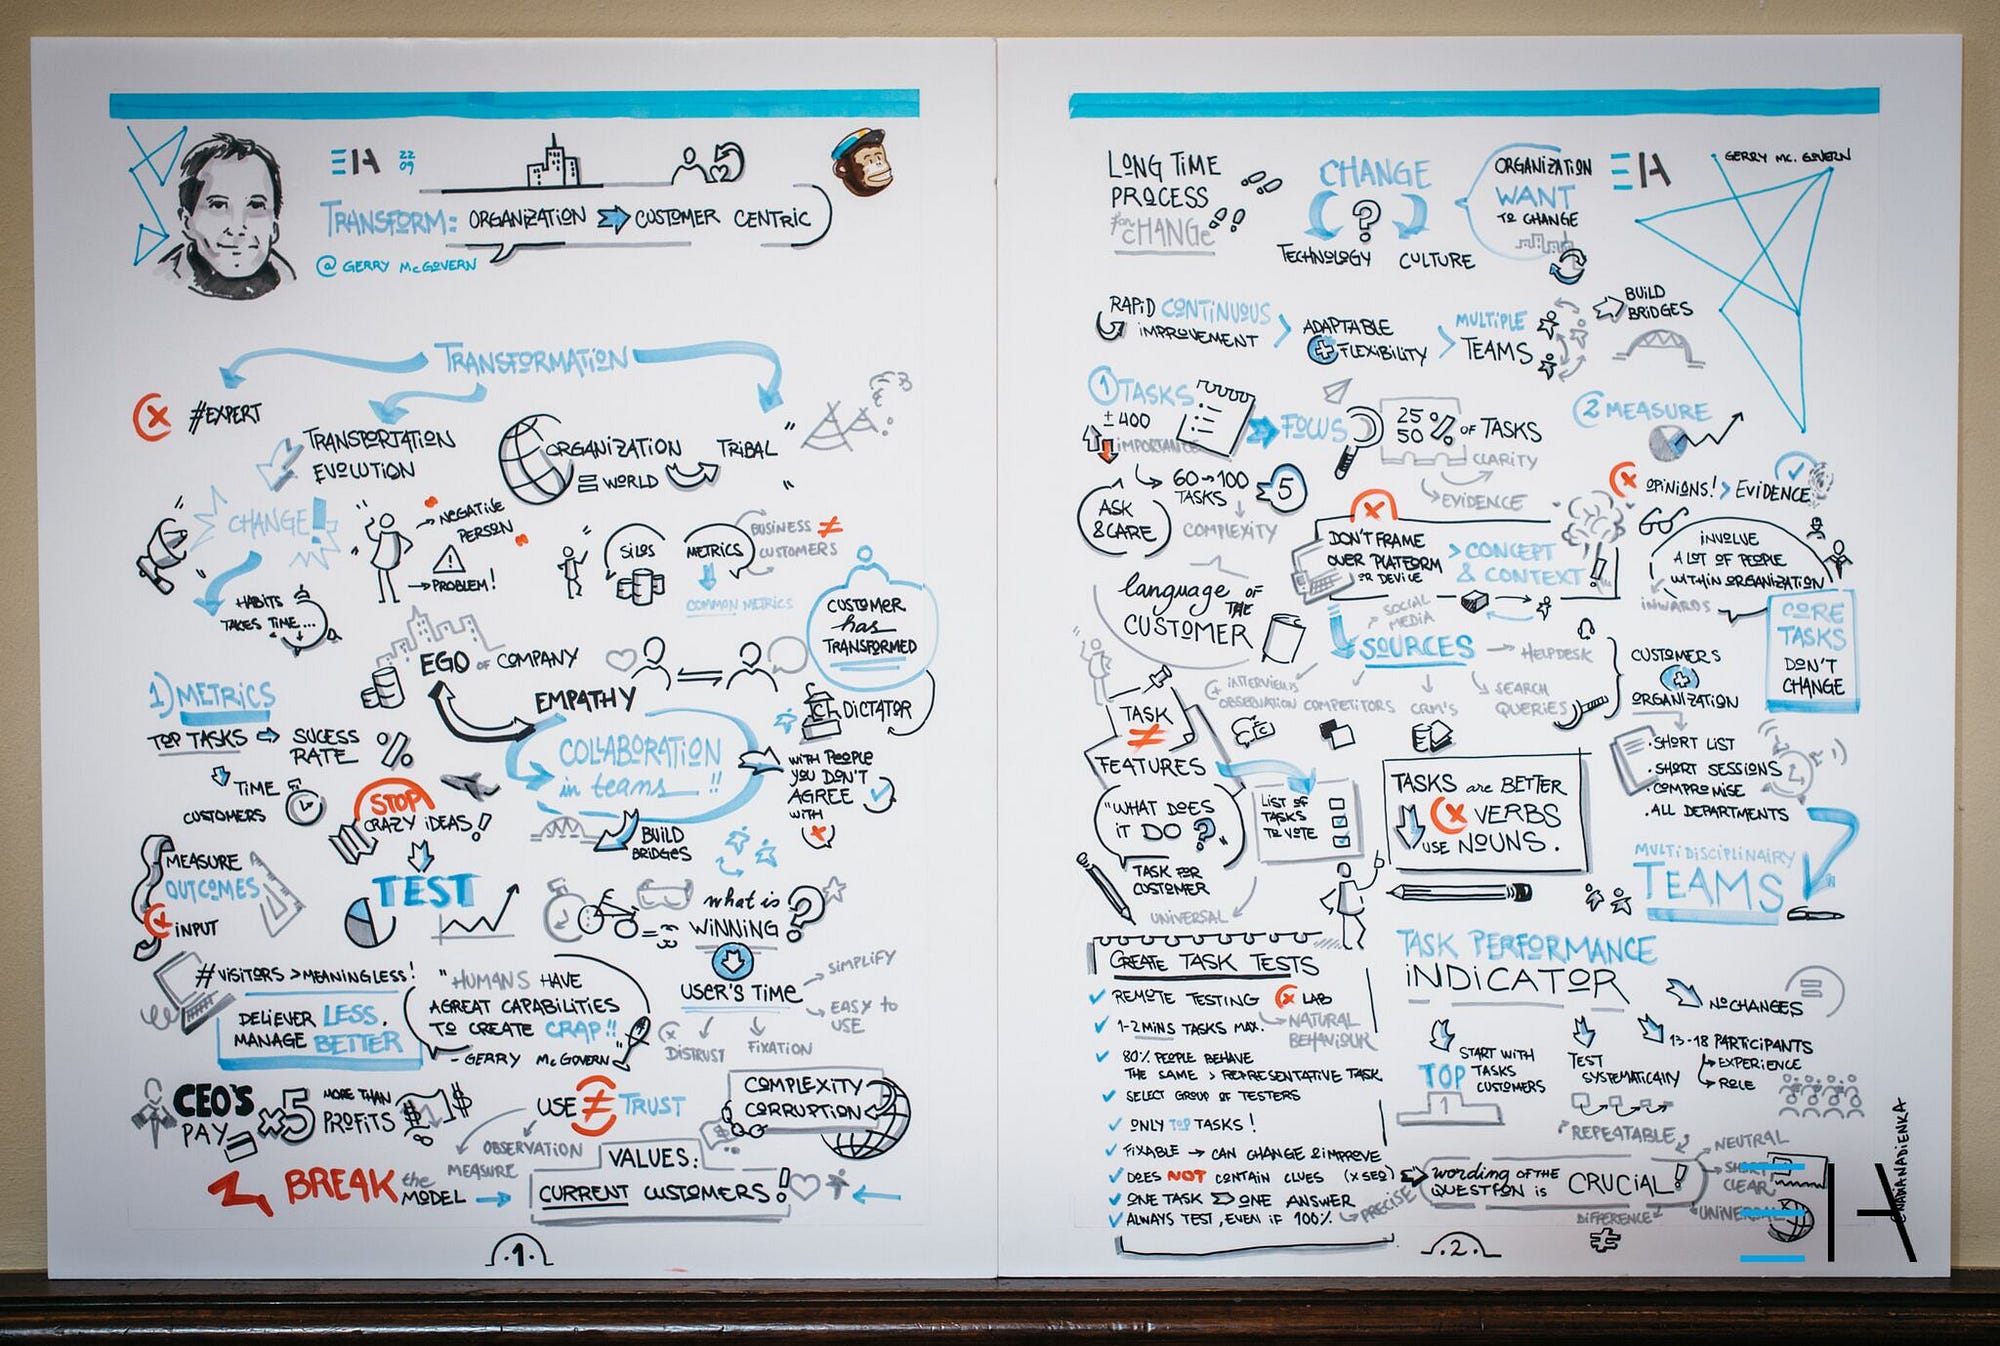 EIA 22 09
TRANSFORM: ORGANIZATION CUSTOMER CENTRIC
@ GERRY McGOVERN
TRANSFORMATION
X #EXPERT
TRANSPORTATION
EVOLUTION
ORGANIZATION
= WORLD
" TRIBAL "
CHANGE!
HABITS
TAKES TIME...
NEGATIVE
PERSON
PROBLEM!
SILOS
METRICS
BUSINESS ≠
CUSTOMERS
COMMON METRICS
CUSTOMER
has
TRANSFORMED
EGO OF COMPANY
EMPATHY
DICTATOR
1) METRICS
TOP TASKS
SUCESS
RATE %
TIME
CUSTOMERS
COLLABORATION
in teams !!
WITH PEOPLE
YOU DON'T
AGREE
WITH
STOP
CRAZY IDEAS!
BUILD
BRIDGES
MEASURE
OUTCOMES
X INPUT
TEST
what is
WINNING ?
#VISITORS > MEANINGLESS!
DELIEVER LESS,
MANAGE BETTER
"HUMANS HAVE
A GREAT CAPABILITIES
TO CREATE CRAP!!"
- GERRY McGOVERN
USER'S TIME
SIMPLIFY
EASY TO
USE
DISTRUST
FIXATION
CEO'S
PAY
x5
MORE THAN
PROFITS
USE ≠ TRUST
OBSERVATION
MEASURE
COMPLEXITY
CORRUPTION
BREAK the
MODEL
VALUES:
CURRENT CUSTOMERS!
.1.
LONG TIME
PROCESS
for CHANGE
CHANGE
?
TECHNOLOGY CULTURE
ORGANIZATION
WANT
TO CHANGE
EIA
GERRY MC. GOVERN
RAPID CONTINUOUS
IMPROVEMENT
ADAPTABLE
+ FLEXIBILITY
MULTIPLE
TEAMS
BUILD
BRIDGES
1 TASKS
± 400
IMPORTANCE
FOCUS
25 %
50
OF TASKS
CLARITY
EVIDENCE
2 MEASURE
X OPINIONS! > EVIDENCE
60→100
TASKS
5
COMPLEXITY
ASK
& CARE
X
DON'T FRAME
OVER PLATFORM
OR DEVICE
> CONCEPT
& CONTEXT!
INVOLVE
A LOT OF PEOPLE
WITHIN ORGANIZATION
INWARDS
CORE
TASKS
DON'T
CHANGE
language OF
THE
CUSTOMER
SOCIAL
MEDIA
SOURCES
HELPDESK
INTERVIEWS
OBSERVATION
COMPETITORS
CRM'S
SEARCH
QUERIES
CUSTOMERS
+
ORGANIZATION
TASK
≠
FEATURES
"WHAT DOES
IT DO ?"
LIST OF
TASKS
TO VOTE
TASKS are BETTER
X VERBS
USE NOUNS.
. SHORT LIST
. SHORT SESSIONS
. COMPROMISE
. ALL DEPARTMENTS
TASK FOR
CUSTOMER
UNIVERSAL
MULTIDISCIPLINAIRY
TEAMS
CREATE TASK TESTS
REMOTE TESTING X LAB
1-2 MINS TASKS MAX.
NATURAL
BEHAVIOUR
80% PEOPLE BEHAVE
THE SAME > REPRESENTATIVE TASK
SELECT GROUP OF TESTERS
ONLY TOP TASKS!
FIXABLE → CAN CHANGE & IMPROVE
DOES NOT CONTAIN CLUES (X SEO)
ONE TASK ONE ANSWER
ALWAYS TEST, EVEN IF 100%
PRECISE
TASK PERFORMANCE
INDICATOR
NO CHANGES
TOP
START WITH
TASKS
CUSTOMERS
1
TEST
SYSTEMATICAMY
13-18 PARTICIPANTS
EXPERIENCE
ROLE
REPEATABLE
wording OF THE
QUESTION IS
CRUCIAL!
NEUTRAL
SHORT
CLEAR
UNIVERSAL
DIFFERENCE
.2.
@NANADIENKA
EIA